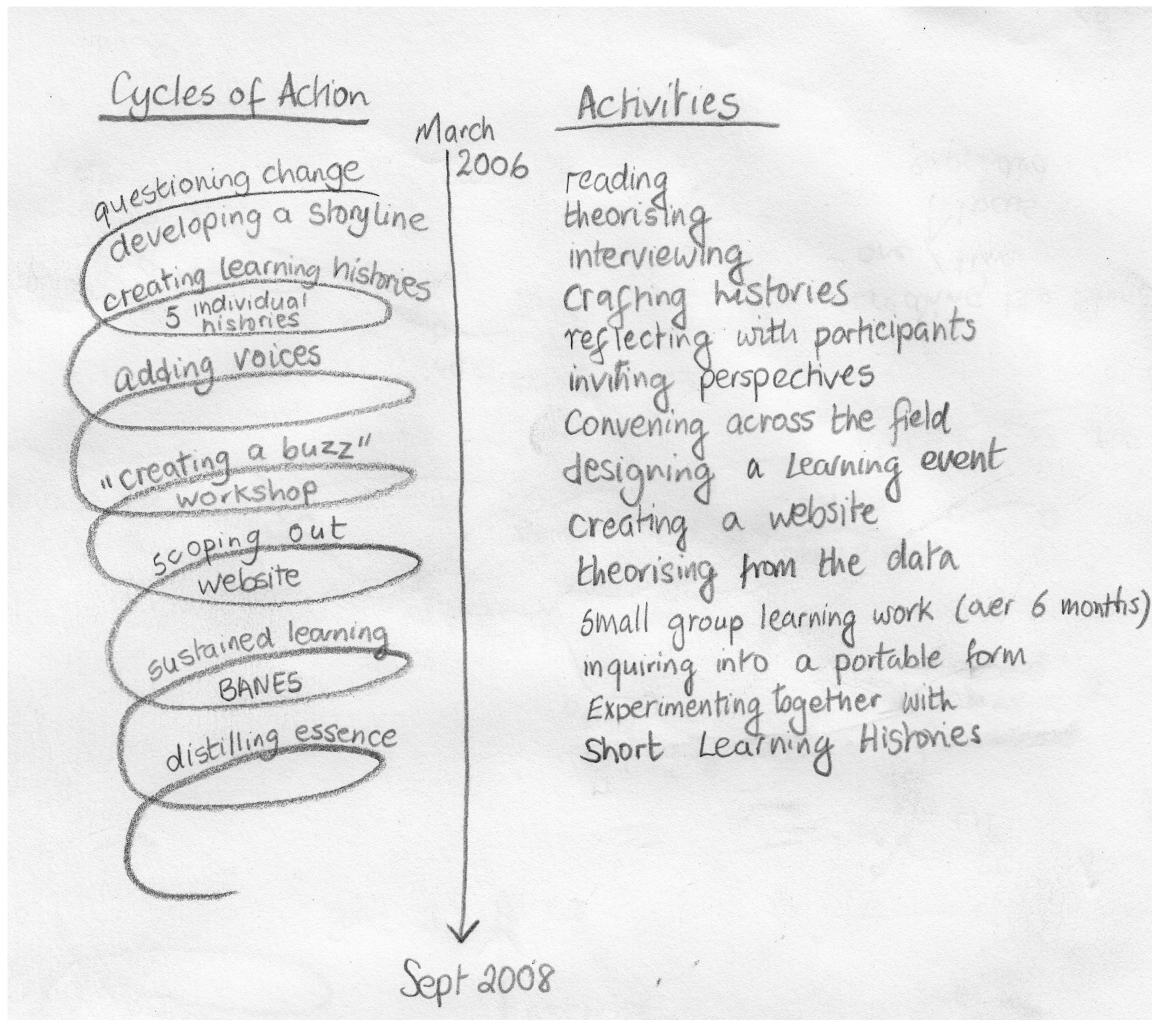 Cycles of Action
questioning change
developing a storyline
creating learning histories
5 individual
histories
adding voices
"creating a buzz"
workshop
scoping out
website
sustained learning
BANES
distilling essence
March
2006
Sept 2008
Activities
reading
theorising
interviewing
Crafting histories
reflecting with participants
inviting perspectives
Convening across the field
designing a Learning event
Creating a website
theorising from the data
Small group learning work (over 6 months)
inquiring into a portable form
Experimenting together with
Short Learning Histories